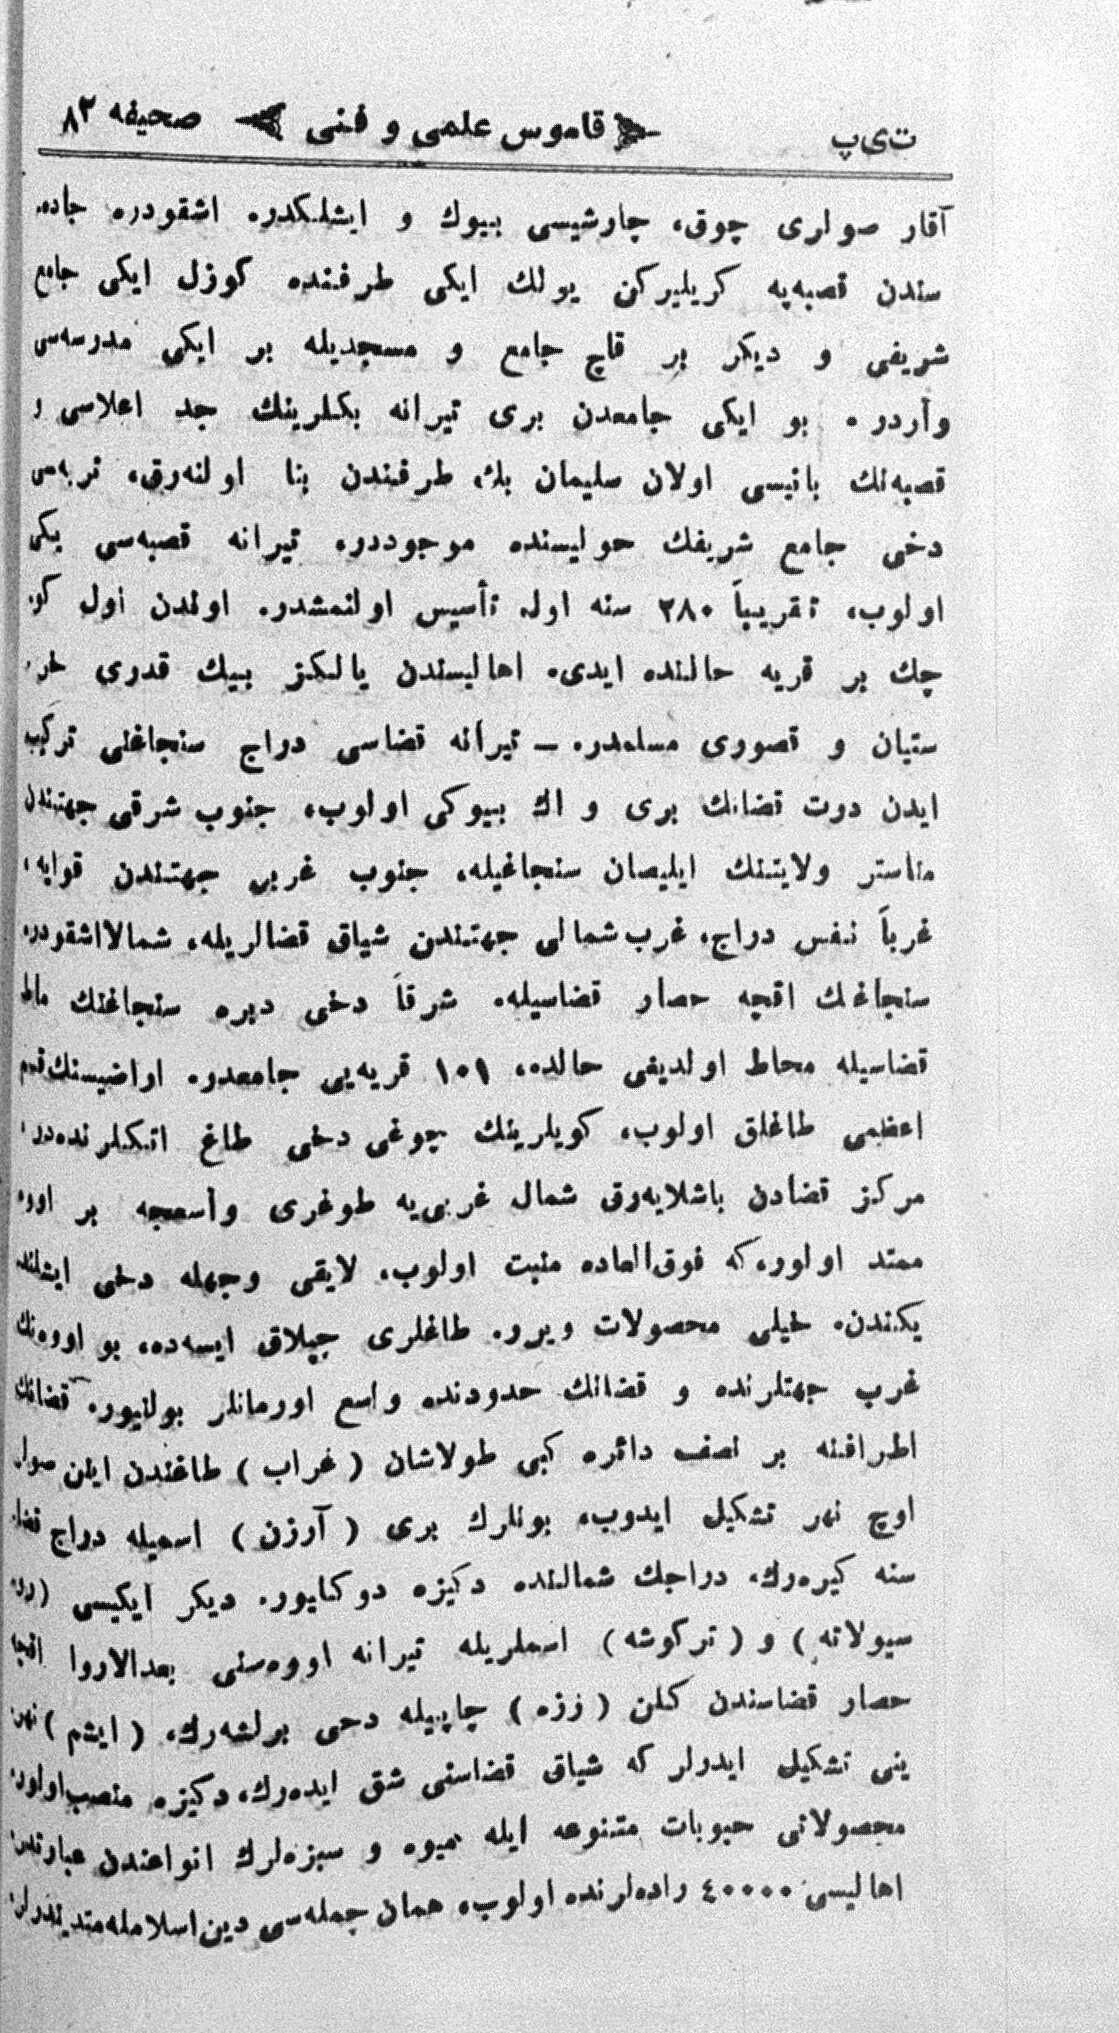 ت‌ی‌پ قاموس علمی و فنی صحیفه ٨٣
آقار صولری چوق، چارشیسی بیوك و ایشلكدر. اشقودره جاده‌
سندن قصبه‌یه كریلیركن یولك ایكی طرفنده كوزل ایكی جامع
شریفی و دیكر بر قاچ جامع و مسجدیله بر ایكی مدرسه‌سی
واردر. بو ایكی جامعدن بری تیرانه بكلرینك جد اعلاسی و
قصبه‌نك بانیسی اولان سلیمان بك طرفندن بنا اولنه‌رق، تربه‌سی
دخی جامع شریفك حولیسنده موجوددر. تیرانه قصبه‌سی یكی
اولوب، تقریباً ٢٨٠ سنه اول تأسیس اولنمشدر. اوندن اول كو‌
چك بر قریه حالنده ایدی. اهالیسندن یالكز بیك قدری خر‌
ستیان و قصوری مسلمدر. ــ تیرانه قضاسی دراج سنجاغنی تركیب
ایدن دوت قضانك بری و اك بیوكی اولوب، جنوب شرقی جهتندن
مناستر ولایتنك ایلبصان سنجاغیله، جنوب غربی جهتندن قوایه،
غرباً نفس دراج، غرب شمالی جهتندن شیاق قضالریله، شمالاً اشقودره
سنجاغك اقچه حصار قضاسیله. شرقاً دخی دبره سنجاغنك ماط
قضاسیله محاط اولدیغی حالده، ١٠١ قریه‌یی جامعدر. اراضیسنك قسم
اعظمی طاغلق اولوب، كویلرینك چوغی دخی طاغ اتكلرنده‌در.
مركز قضادن باشلایه‌رق شمال غربی‌یه طوغری واسعجه بر اووه
ممتد اولور، كه فوق‌العاده منبت اولوب، لایقی وجهله دخی ایشلند
یكندن. خیلی محصولات ویرر. طاغلری چپلاق ایسه‌ده، بو اووه‌نك
غرب جهتلرنده و قضانك حدودنده واسع اورمانلر بولنیور. قضانك
اطرافنه بر نصف دائره كبی طولاشان (غراب) طاغندن اینن صولر
اوچ نهر تشكیل ایدوب، بونلرك بری (آرزن) اسمیله دراج قضا‌
سنه كیره‌رك، دراجك شمالنده دكیزه دوكلیور. دیكر ایكیسی (رود
سیولاته) و (تركوشه) اسملریله تیرانه اووه‌سنی بعدالاروا اقچه
حصار قضاسندن كلن (ززه) چاییله دخی برلشه‌رك، (ایشم) نهر‌
ینی تشكیل ایدرلر كه شیاق قضاسنی شق ایده‌رك، دكیزه منصب اولور.
محصولاتی حبوبات متنوعه ایله میوه و سبزه‌لرك انواعندن عبارتدر.
اهالیسی ٤٠٠٠٠ راده‌لرنده اولوب، همان جمله‌سی دین اسلامله متدیندرلر.